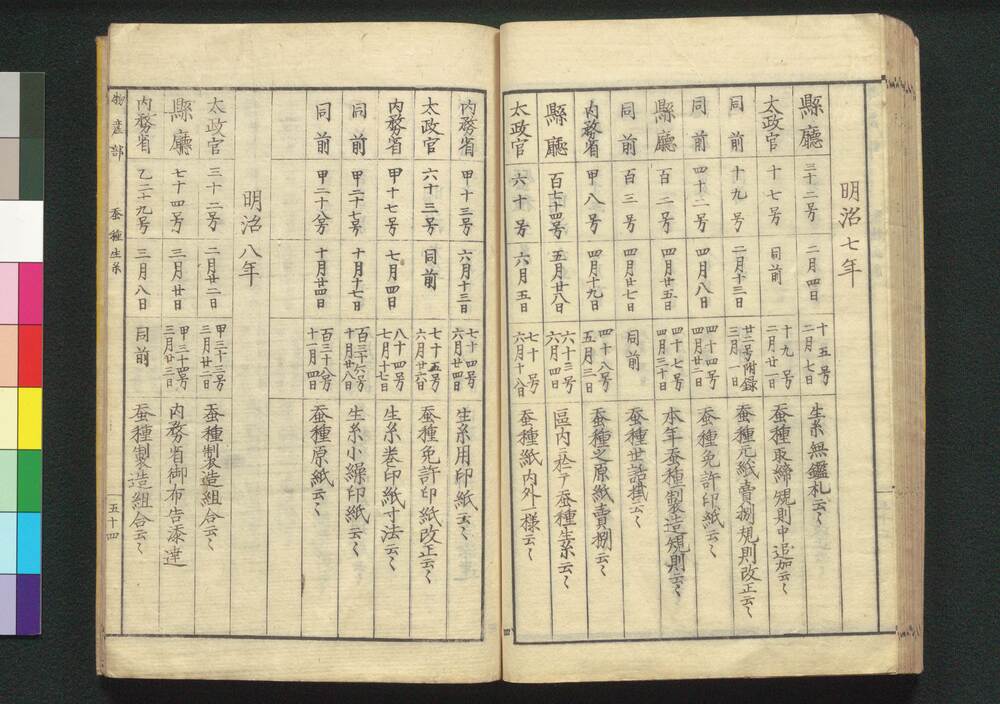 明治七年
縣廳 三十二号 二月四日 十五号 二月七日 生糸無鑑札云〻
太政官 十七号 同前 十九号 二月廿一日 蚕種取締規則中追加云〻
同前 十九号 二月十三日 廿二号附録 三月一日 蚕種元紙賣捌規則改正云〻
同前 四十二号 四月八日 四十四号 四月廿二日 蚕種免許印紙云〻
縣廳 百二号 四月廿五日 四十七号 四月三十日 本年蚕種製造規則云〻
同前 百三号 四月廿七日 同前 蚕種世話掛云〻
内務省 甲八号 四月十九日 四十八号 五月三日 蚕種之原紙賣捌云〻
縣廳 百七十四号 五月廿八日 六十三号 六月四日 區内ニ於テ蚕種生糸云〻
太政官 六十号 六月五日 七十号 六月十八日 蚕種紙内外一様云〻
内務省 甲十三号 六月十三日 七十四号 六月廿四日 生糸用印紙云〻
太政官 六十三号 同前 七十五号 六月廿六日 蚕種免許印紙改正云〻
内務省 甲十七号 七月四日 八十四号 七月十七日 生糸巻印紙寸法云〻
同前 甲二十七号 十月十七日 百三十六号 十月廿八日 生糸小繰印紙云〻
同前 甲二十八号 十月廿四日 百三十八号 十一月四日 蚕種原紙云〻
明治八年
太政官 三十二号 二月廿二日 甲三十三号 三月廿二日 蚕種製造組合云〻
縣廳 七十四号 三月廿日 甲三十四号 三月廿三日 内務省御布告添達
内務省 乙二十九号 三月八日 同前 蚕種製造組合云〻
物産部 蚕種生糸 五十四